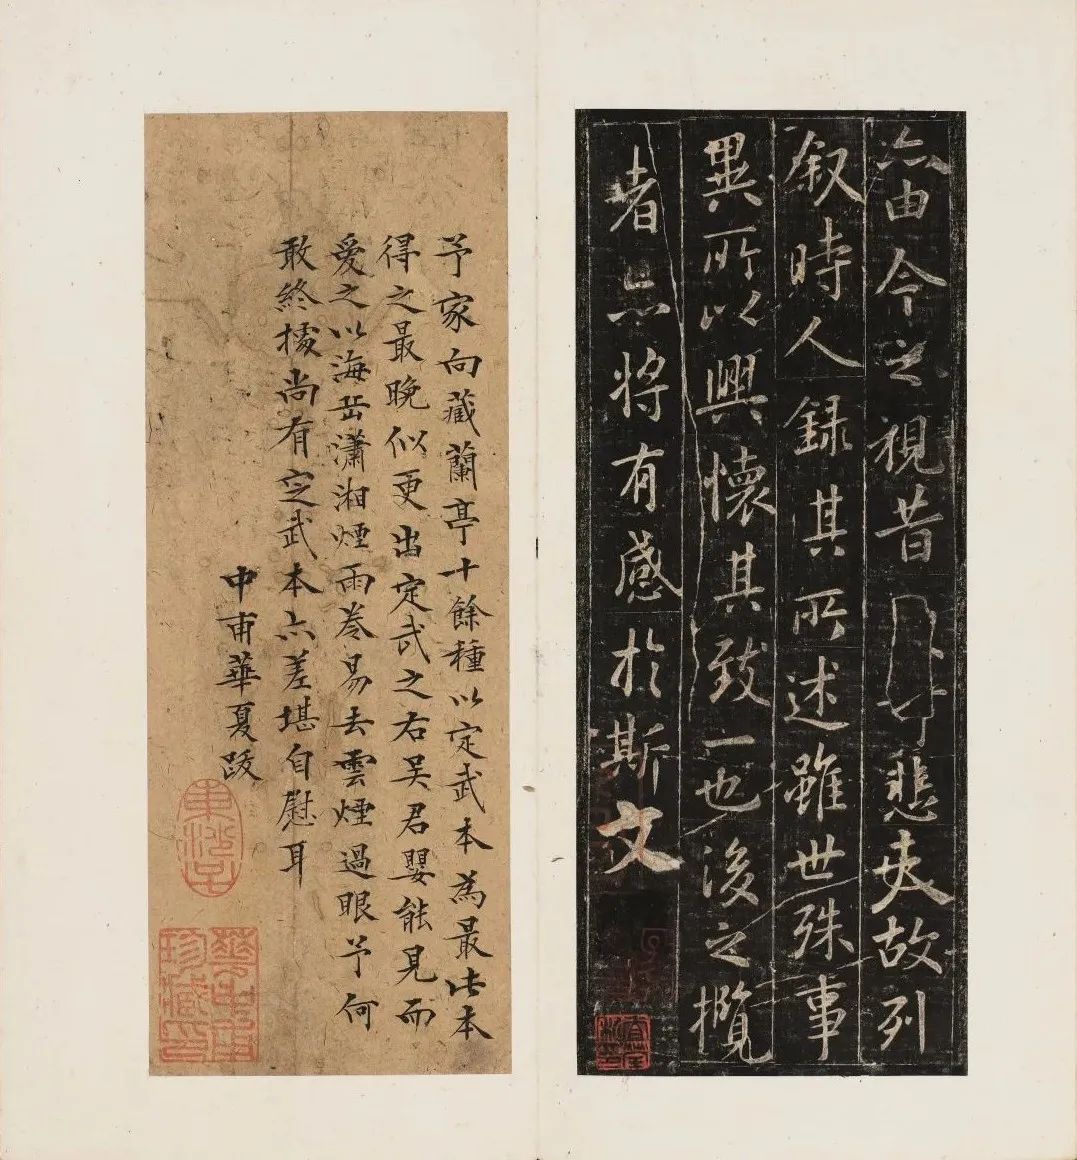 亦由今之視昔悲夫故列
叙時人錄其所述雖世殊事
異所以興懷其致一也後之攬
者亦將有感於斯文
予家向藏蘭亭十餘種以定武本為最此本
得之最晚似更出定武之右吳君嬰能見而
愛之以海岳瀟湘煙雨卷易去雲煙過眼予何
敢終據尚有定武本亦差堪自慰耳
中甫華夏跋
東沙子
華中甫
珍藏印